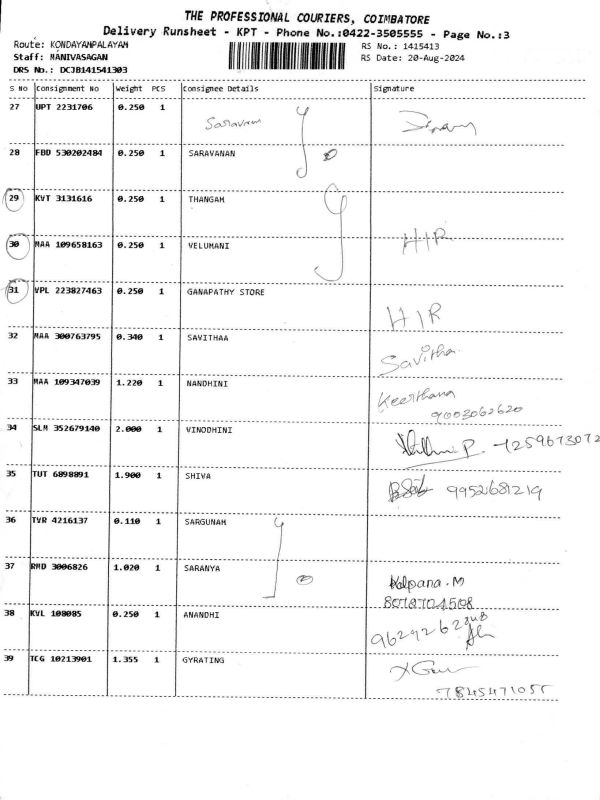 THE PROFESSIONAL COURIERS, COIMBATORE
Delivery Runsheet - KPT - Phone No.:0422-3505555 - Page No.:3
Route: KONDAYAMPALAYAM RS No.: 1415413
Staff: MANIVASAGAN RS Date: 20-Aug-2024
DRS No.: DCJB141541303
S No Consignment No Weight PCS Consignee Details Signature
27 UPT 2231706 0.250 1
Saravanan
28 FBD 530202484 0.250 1 SARAVANAN
29 KVT 3131616 0.250 1 THANGAM
30 MAA 109658163 0.250 1 VELUMANI HIR
31 VPL 223827463 0.250 1 GANAPATHY STORE
HIR
32 MAA 300763795 0.340 1 SAVITHAA
Savitha
33 MAA 109347039 1.220 1 NANDHINI
Keerthana
9003062620
34 SLM 352679140 2.000 1 VINODHINI
P. 7259673072
35 TUT 6898891 1.900 1 SHIVA
9952681219
36 TVR 4216137 0.110 1 SARGUNAM
37 RMD 3006826 1.020 1 SARANYA
Kalpana.M
8078704508
38 KVL 108085 0.250 1 ANANDHI
39 TCG 10213901 1.355 1 GYRATING
7845471055